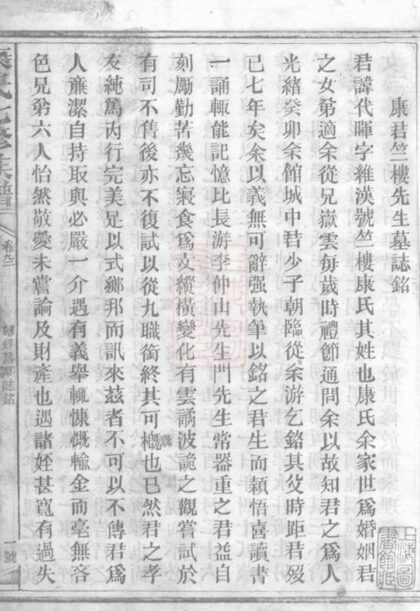 康君竺樓先生墓誌銘
君諱代暉字維漢號竺樓康氏其姓也康氏余家世爲婚姻君
之女弟適余從兄嶽雲每歲時禮節通問余以故知君之爲人
光緒癸卯余館城中君少子朝臨從余游乞銘其父時距君歿
已七年矣余以義無可辭强執筆以銘之君生而穎悟喜讀書
一誦輒能記憶比長游李仲山先生門先生常器重之君益自
刻勵勤苦幾忘寢食爲文縱橫變化有雲譎波詭之觀嘗試於
有司不售後亦不復試以從九職銜終其可槪也已然君之孝
友純篤內行完美足以式鄉邦而訊來茲者不可以不傳君爲
人廉潔自持取與必嚴一介遇有義舉輒慷慨輸金而毫無吝
色兄弟六人怡然敬愛未嘗論及財產也遇諸姪甚寬有過失
康氏七修族譜
卷九二
墓誌銘
一號